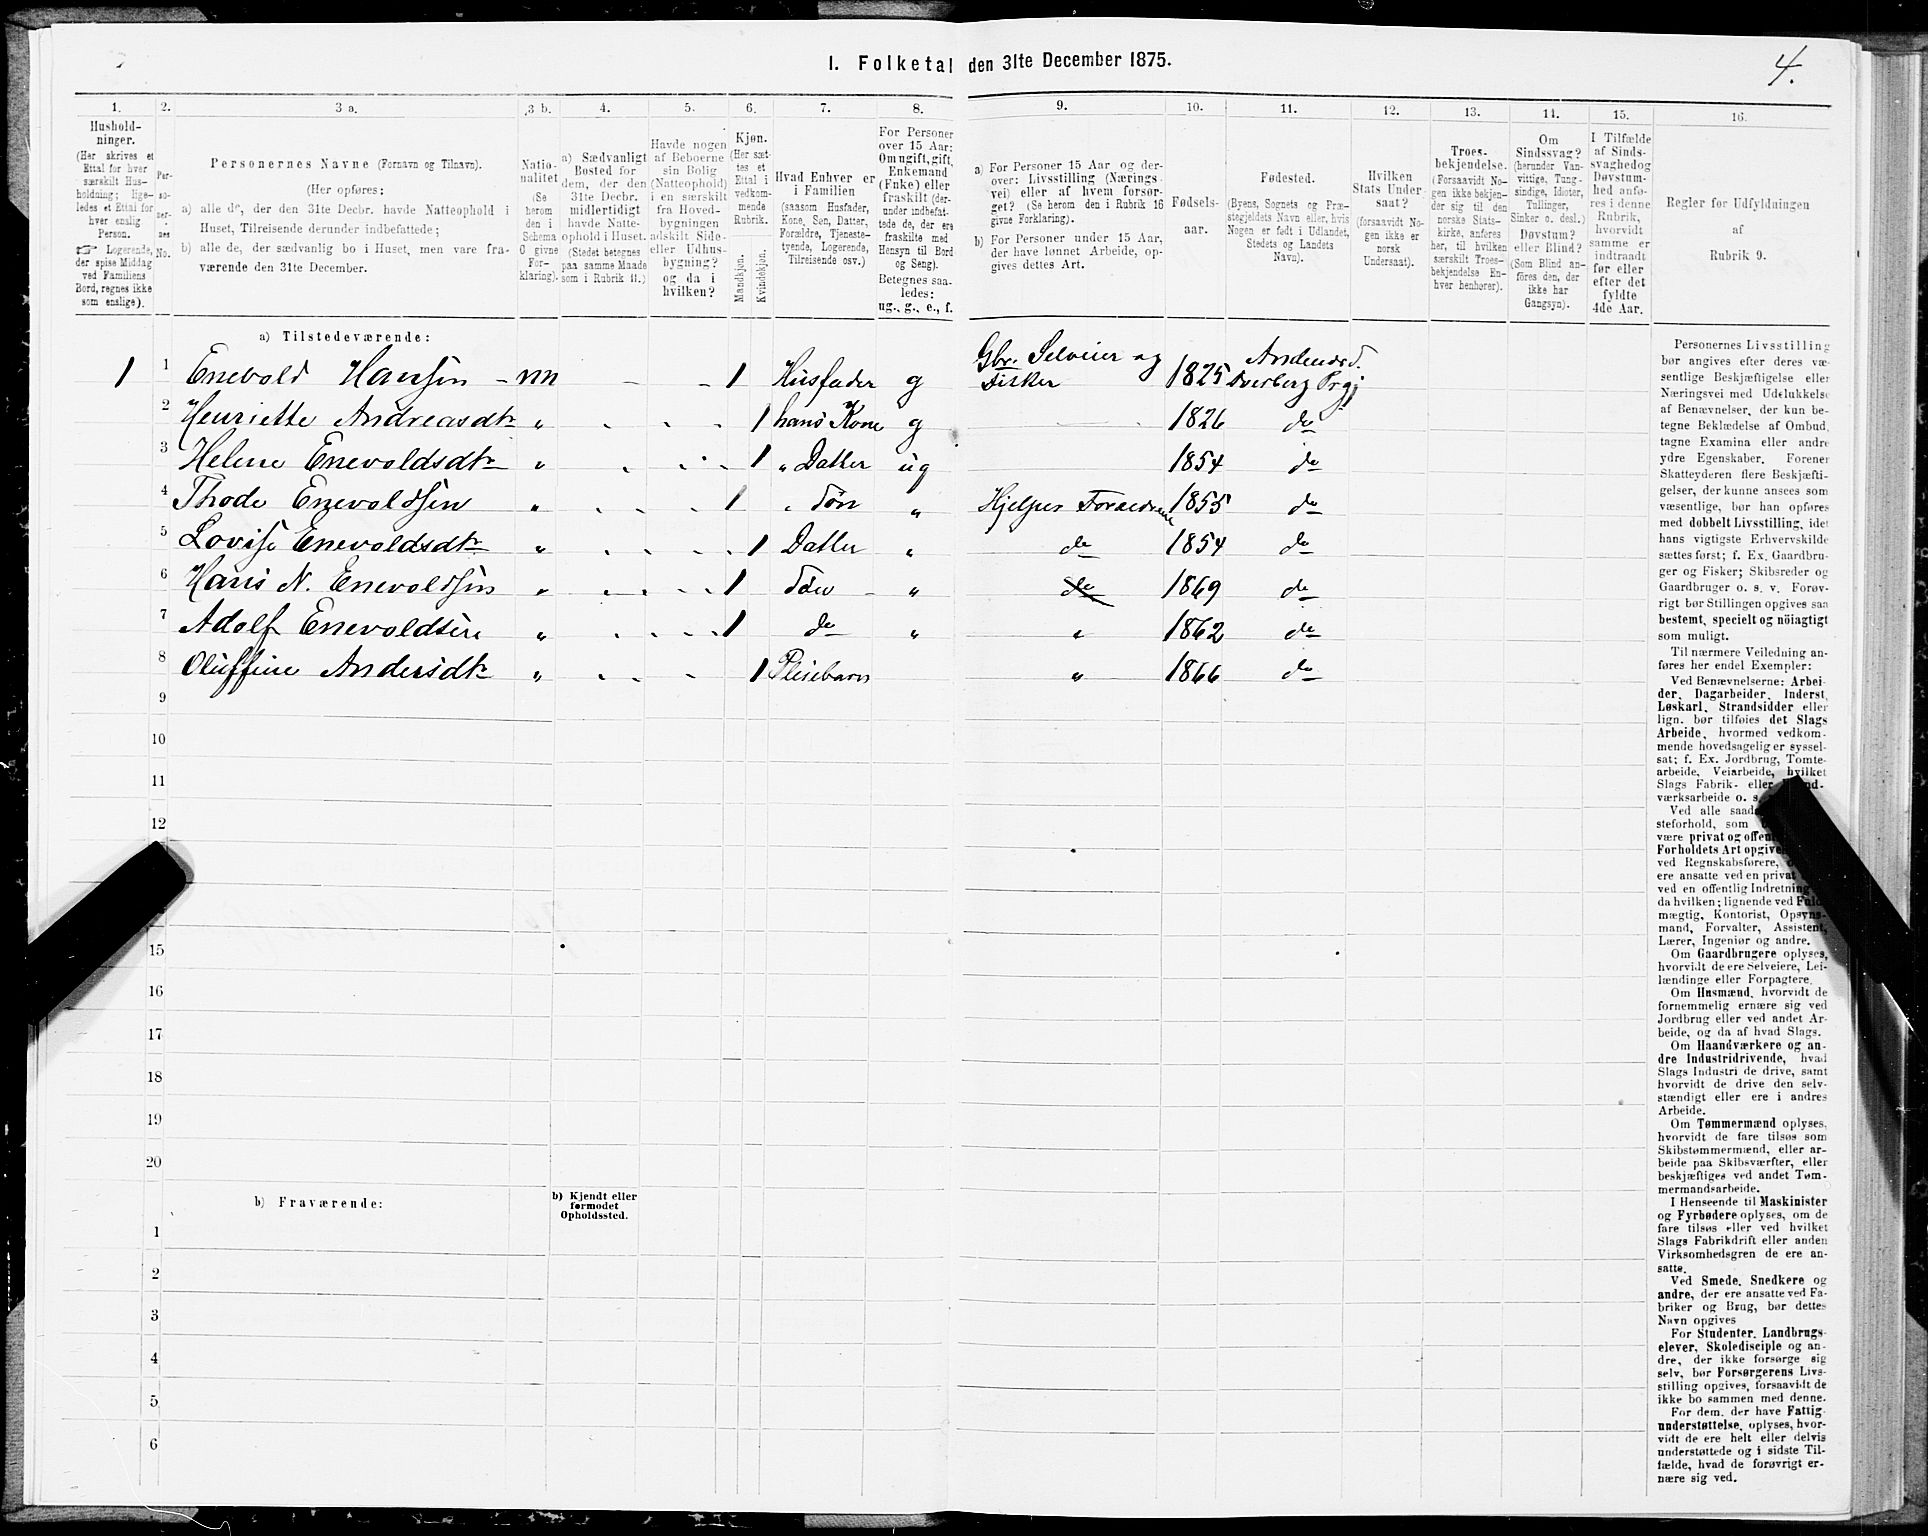 I. Folketal den 31te December 1875.
4.
1. 2. 3 a. 3 b. 4. 5. 6. 7. 8. 9. 10. 11. 12. 13. 14. 15. 16.
Hushold-
ninger.
(Her skrives et
Ettal for hver
særskilt Hus-
holdning; lige-
ledes et Ettal for
hver enslig
Person.
☞ Logerende,
der spise Middag
ved Familiens
Bord, regnes ikke
som enslige).
Per-
so-
ner-
nes
No.
Personernes Navne (Fornavn og Tilnavn).
(Her opføres:
a) alle de, der den 31te Decbr. havde Natteophold i
Huset, Tilreisende derunder indbefattede;
b) alle de, der sædvanlig bo i Huset, men vare fra-
værende den 31te December.
Natio-
nalitet
(Se
herom
den i
Schema
6 givne
For-
klaring).
a) Sædvanligt
Bosted for
dem, der den
31te Decbr.
midlertidigt
havde Natte-
ophold i Huset.
(Stedet betegnes
paa samme Maade
som i Rubrik 11.)
Havde nogen
af Beboerne
sin Bolig
(Natteophold)
i en særskilt
fra Hoved-
bygningen
adskilt Side-
eller Udhus-
bygning?
og da i
hvilken?
Kjøn.
(Her sæt-
tes et
Ettal i
vedkom-
mende
Rubrik.
Mandkjøn.
Kvindekjøn.
Hvad Enhver er
i Familien
(saasom Husfader,
Kone, Søn, Datter,
Forældre, Tjeneste-
tyende, Logerende,
Tilreisende osv.)
For Personer
over 15 Aar:
Om ugift, gift,
Enkemand
(Enke) eller
fraskilt (der-
under indbefat-
tede de, der ere
fraskilte med
Hensyn til Bord
og Seng).
Betegnes saa-
ledes:
ug., g., e., f.
a) For Personer 15 Aar og der-
over: Livsstilling (Nærings-
vei) eller af hvem forsør-
get? (Se herom den i Rubrik 16
givne Forklaring).
b) For Personer under 15 Aar,
der have lønnet Arbeide, op-
gives dettes Art.
Fødsels-
aar.
Fødested.
(Byens, Sognets og Præ-
stegjeldets Navn eller, hvis
Nogen er født i Udlandet,
Stedets og Landets
Navn).
Hvilken
Stats Under-
saat?
(forsaavidt No-
gen ikke er
norsk
Undersaat).
Troes-
bekjendelse.
(Forsaavidt No-
gen ikke bekjen-
der sig til den
norske Stats-
kirke, anføres
her, til hvilken
særskilt Troes-
bekjendelse En-
hver henhører).
Om
Sindssvag?
(herunder Van-
vittige, Tung-
sindige, Idioter,
Tullinger,
Sinker o. desl.)
Døvstum?
eller Blind?
(Som Blind an-
føres den, der
ikke har
Gangsyn).
I Tilfælde
af Sinds-
svaghed og
Døvstum-
hed anfø-
res i denne
Rubrik,
hvorvidt
samme er
indtraadt
før eller
efter det
fyldte
4de Aar.
Regler for Udfyldningen
af
Rubrik 9.
a) Tilstedeværende:
1 1 Enevold Hansen - nn - - 1 Husfader g Gbr. Selveier og Fisker 1825 Andenæs S. Dverberg Prgj
2 Henriette Andreasdtr " 1 hans Kone g 1826 do
3 Helene Enevoldsdtr " 1 " Datter ug 1854 do
4 Thode Enevoldsen " 1 " Søn " Hjelper Forældrene 1855 do
5 Lovise Enevoldsdtr " 1 Datter " do 1854 do
6 Hans N. Enevoldsen " 1 Søn - " do 1869 do
7 Adolf Enevoldsen " 1 do " " 1862 do
8 Oluffine Andersdtr " 1 Pleiebarn " 1866 do
9
10
11
12
15
16
17
18
19
20
b) Fraværende:
b) Kjendt eller
formodet
Opholdssted.
1
2
3
4
5
6
Personernes Livsstilling
bør angives efter deres væ-
sentlige Beskjæftigelse eller
Næringsvei med Udelukkelse
af Benævnelser, der kun be-
tegne Beklædelse af Ombud,
tagne Examina eller andre
ydre Egenskaber. Forener
Skatteyderen flere Beskjæfti-
gelser, der kunne ansees som
væsentlige, bør han opføres
med dobbelt Livsstilling, idet
hans vigtigste Erhvervskilde
sættes først; f. Ex. Gaardbru-
ger og Fisker; Skibsreder og
Gaardbruger o. s. v. Forøv-
rigt bør Stillingen opgives saa
bestemt, specielt og nöiagtigt
som muligt.
Til nærmere Veiledning an-
føres her endel Exempler:
Ved Benævnelserne: Arbei-
der, Dagarbeider, Inderst,
Løskarl, Strandsidder eller
lign. bør tilføies det Slags
Arbeide, hvormed vedkom-
mende hovedsagelig er syssel-
sat; f. Ex. Jordbrug, Tomte-
arbeide, Veiarbeide, hvilket
Slags Fabrik- eller
værksarbeide o. s.
Ved alle
steforhold, som
være privat og
Forholdets Art
ved Regnskabsførere,
ere ansatte ved en privat
ved en offentlig Indretning
da hvilken; lignende ved
mægtig, Kontorist, Opsyns-
mand, Forvalter, Assistent,
Lærer, Ingeniør og andre.
Om Gaardbrugere oplyses,
hvorvidt de ere Selveiere, Lei-
lændinge eller Forpagtere.
Om Husmænd, hvorvidt de
fornemmelig ernære sig ved
Jordbrug eller ved andet Ar-
beide, og da af hvad Slags.
Om Haandværkere og an-
dre Industridrivende, hvad
Slags Industri de drive, samt
hvorvidt de drive den selv-
stændigt eller ere i andres
Arbeide.
Om Tømmermænd oplyses,
hvorvidt de fare tilsøs som
Skibstømmermænd, eller ar-
beide paa Skibsværfter, eller
beskjæftiges ved andet Tøm-
mermandsarbeide.
I Henseende til Maskinister
og Fyrbødere oplyses, om de
fare tilsøs eller ved hvilket
Slags Fabrikdrift eller anden
Virksomhedsgren de ere an-
satte.
Ved Smede, Snedkere og
andre, der ere ansatte ved Fa-
briker og Brug, bør dettes
Navn opgives
For Studenter, Landbrugs-
elever, Skoledisciple og an-
dre, der ikke forsørge sig
selv, bør Forsørgerens Livs-
stilling opgives, forsaavidt de
ikke bo sammen med denne.
For dem, der have Fattig-
understøttelse, oplyses, hvor-
vidt de ere helt eller delvis
understøttede og i sidste Til-
fælde, hvad de forøvrigt er-
nære sig ved.